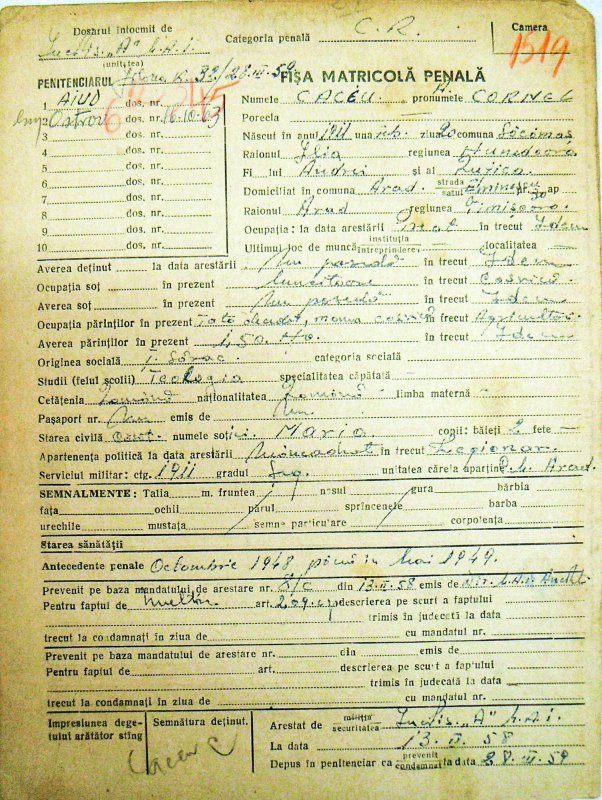 Dosarul întocmit de
Categoria penală C. R.
Camera
1519
(unitatea)
PENITENCIARUL
FIȘA MATRICOLĂ PENALĂ
1 AIUD dos. nr.
2 Ostrov dos. nr. 16.10.63
3 dos. nr.
4 dos. nr.
5 dos. nr.
6 dos. nr.
7 dos. nr.
8 dos. nr.
9 dos. nr.
10 dos. nr.
Numele CACEU pronumele CORNEL
Porecla —
Născut în anul 1911 una ziua comuna Săcămaș
Raionul Ilia regiunea Hunedoara
Fi lui Andrei și al
Domiciliat in comuna Arad strada satul Eminescu nr. 30 ap
Raionul Arad regiunea Timișoara
Ocupația: la data arestării în trecut Idem
Ultimul loc de muncă: instituția întreprinderei — localitatea —
Averea deținut la data arestării Nu posedă în trecut Idem
Ocupația soț în prezent în trecut Casnică
Averea soț în prezent Nu posedă în trecut Idem
Ocupația părinților în prezent Tata decedat, mama casnică în trecut Agricultor
Averea părinților în prezent 1,50 Ha. în trecut Idem
Originea socială categoria socială
Studii (felul școlii) Teologia specialitatea căpătată —
Cetățenia Română naționalitatea Română limba maternă —
Pașaport nr. Nu emis de Nu
Starea civilă numele soției Maria copii: băieți 2 fete —
Apartenența politică la data arestării în trecut Legionar
Serviciul militar: ctg. 1911 gradul unitatea căreia aparține Arad
SEMNALMENTE: Talia m. fruntea nasul gura bărbia
fața ochii părul sprîncenele barba
urechile mustața semne particulare corpolența
Starea sănătății
Antecedente penale Octombrie 1948 pînă în Mai 1949.
Prevenit pe baza mandatului de arestare nr. din 13.II.58 emis de
Pentru faptul de art. 209 descrierea pe scurt a faptului
trimis în judecată la data
trecut la condamnați în ziua de cu mandatul nr.
Prevenit pe baza mandatului de arestare nr. din emis de
Pentru faptul de art. descrierea pe scurt a faptului
trimis în judecată la data
trecut la condamnați în ziua de cu mandatul nr.
Impresiunea degetului arătător stîng
Semnătura deținut.
Arestat de miliția securitatea
La data 13. II. 58
Depus în penitenciar ca prevenit condamnat la data 28. III. 59